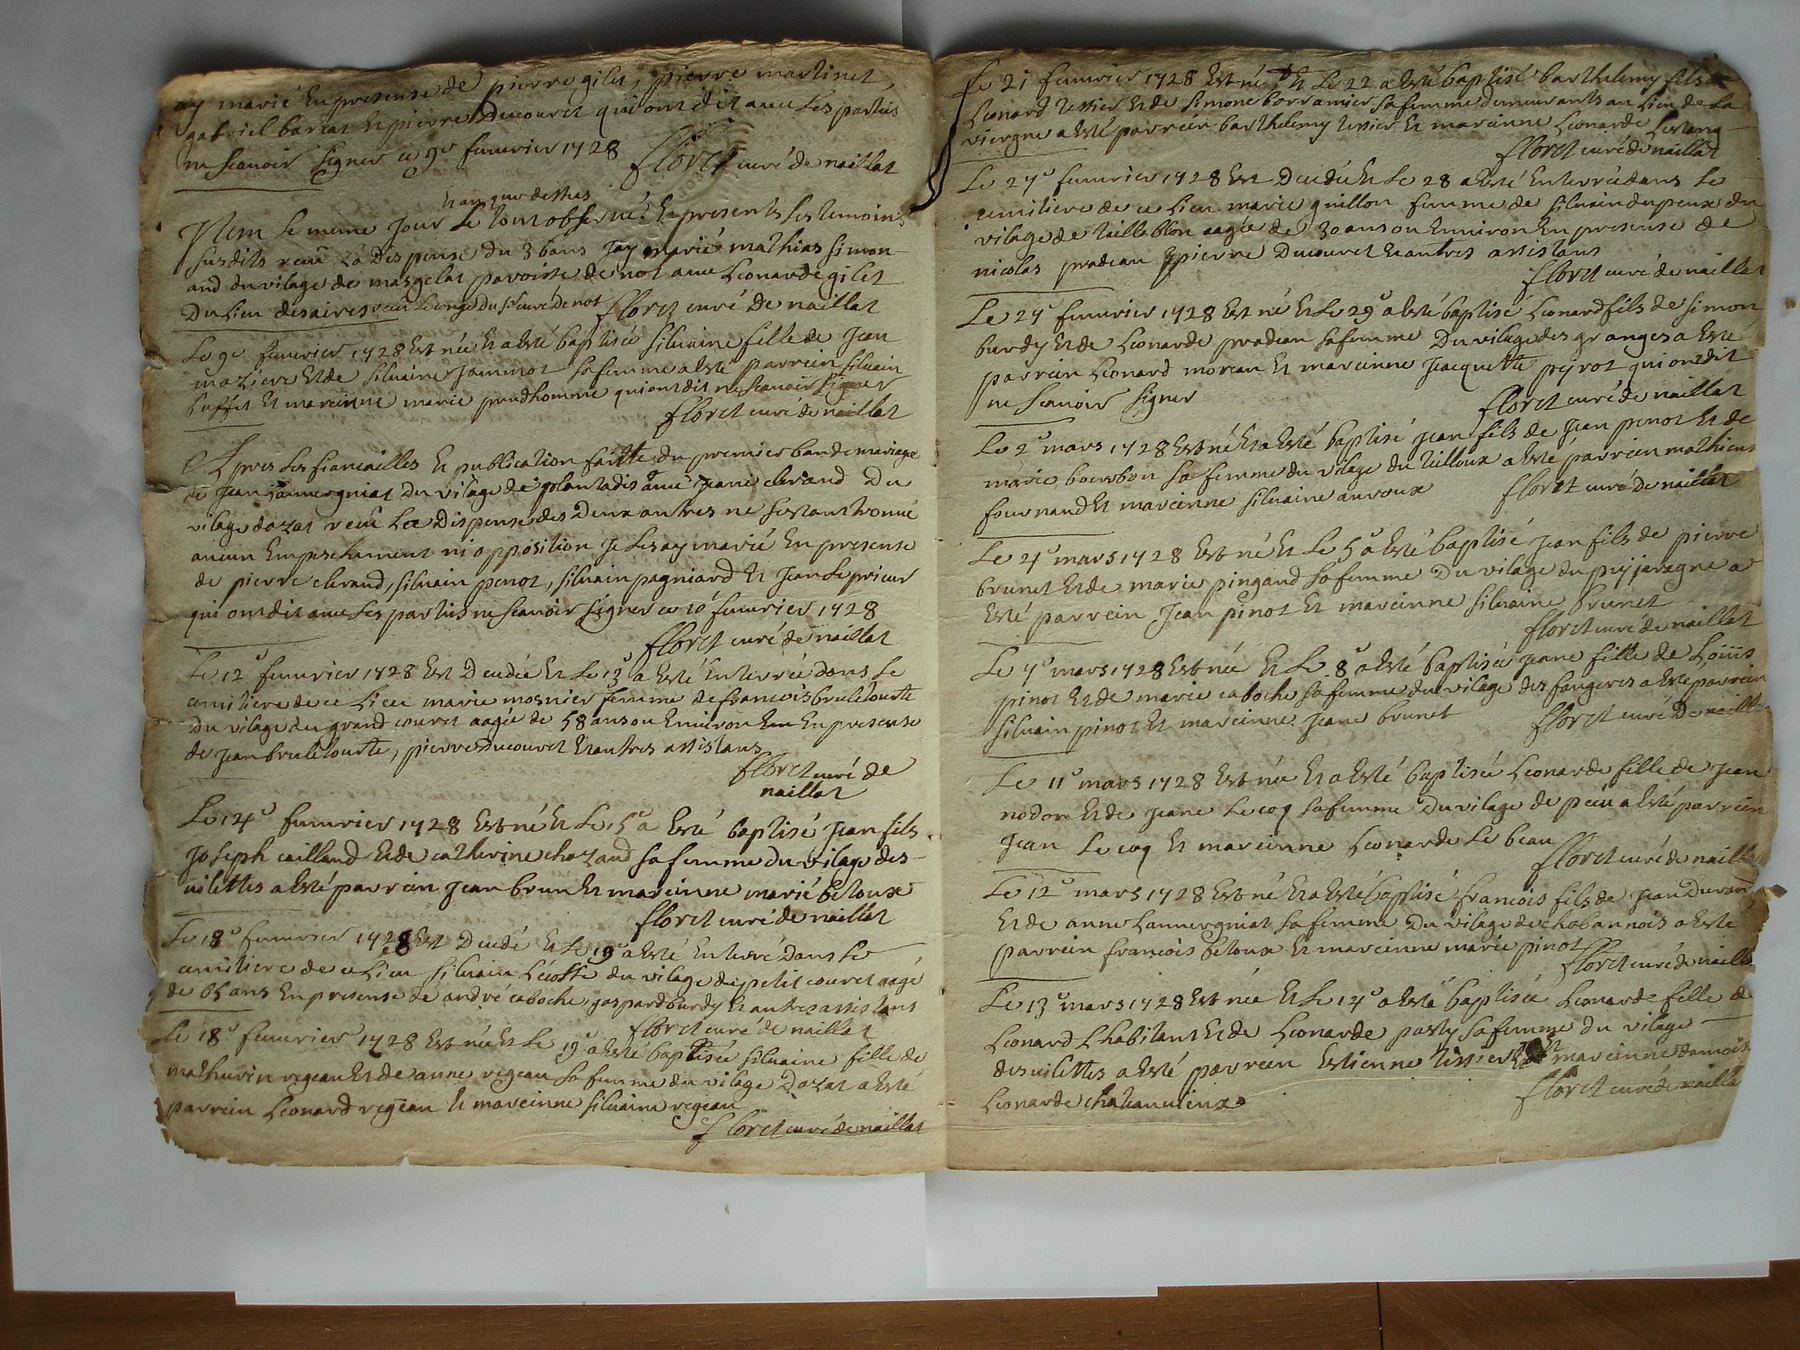 ay marié En presense de pierre gilet, pierre martinet
gabriel bariat Et pierre Ducouret qui ont dit avec Les parties
ne scavoir signer ce 9e feuurier 1728
floret curé de naillat
Item Le meme Jour Le tout observé En presents Les temoins
susdits receu La dispense du 3 bans Jay marié mathias simon
and du vilage de mazgelat paroisse de not avec Leonarde gilet
Du Lieu des aires receu Le congé du sr curé de not floret curé De naillat
Le 9e feuurier 1728 Est née Et a Esté baptisée silvaine fille de Jean
maziere Et de silvaine Jaminot sa femme a Esté parrein silvain
buffet Et mareinne marie prudhomme qui ont dit ne scavoir signer
floret curé de naillat
Apres Les fiancailles Et publication faitte du premier ban de mariage
de Jean Lauvergniat Du vilage de avec Jeane clerand Du
vilage dazat receu La Dispense des Deux autres ne sestant trouvé
aucun Empeschement ni opposition Je Les ay marié En presense
de pierre clerand, silvain penot, silvain pagniard Et Jean Le prieur
qui ont dit avec Les parties ne scavoir signer ce 10e feuurier 1728
floret curé de naillat
Le 12e feuurier 1728 Est Decedée Et Le 13e a Esté Enterrée dans Le
cemitiere de ce Lieu marie mosnier femme de francois bruletourte
Du vilage du grand couret aagée de 58 ans ou Environ En presense
de Jean bruletourte, pierre Ducouret Et autres assistans
floret curé de
naillat
Le 14e feuurier 1728 Est né Et Le 15e a Esté baptisé Jean fils
Joseph caillaud Et de catherine chazaud sa femme du vilage des
vilettes a Esté parrein Jean brun Et mareinne marie betoux
floret curé de naillat
Le 18e feuurier 1728 Est Decedé Et Le 19e a Esté Enterré Dans Le
cemitiere de ce Lieu silvain Lecosse du vilage du petit couret aagé
de 65 ans En presense de andré caboche, gaspard burdy Et autres assistans
floret curé de naillat
Le 18e feuurier 1728 Est née Et Le 19e a Esté baptisée silvaine fille de
mathurin regeau Et de anne regeau sa femme du vilage Dazat a Esté
parrein Leonard regeau Et mareinne silvaine regeau
floret curé de naillat
Le 21 feuurier 1728 Est né Et Le 22 a Esté baptisé barthelemy fils
Leonard tessier Et de simone borramier sa femme demeurants au Lieu de La
viergne a Esté parrein barthelemy tessier Et mareinne Leonarde Lestang
floret curé de naillat
Le 27e feuurier 1728 Est Decedé Et Le 28 a Esté Enterrée dans Le
cemitiere de ce Lieu marie guillon femme de silvain dupeux du
vilage de tailleblon aagée de 30 ans ou Environ En presense de
nicolas pradeau pierre Ducouret Et autres assistans
floret curé de naillat
Le 27 feuurier 1728 Est né Et Le 29e a Esté baptisé Leonard fils de simon
burdy Et de Leonarde pradeau sa femme Du vilage des granges a Esté
parrein Leonard moreau Et mareinne Jacquette peyrot qui ont dit
ne scavoir signer
floret curé de naillat
Le 2e mars 1728 Est né Et a Esté baptisé Jean fils de Jean penot Et de
marie bourbon sa femme du vilage du tilloux a Esté parrein mathieu
fournaud Et mareinne silvaine auroux floret curé De naillat
Le 4e mars 1728 Est né Et Le 5e a Esté baptisé Jean fils de pierre
brunet Et de marie pingaud sa femme Du vilage du a
Esté parrein Jean pinot Et mareinne silvaine brunet
floret curé de naillat
Le 7e mars 1728 Est née Et Le 8e a Esté baptisée Jeane fille de Louis
pinot Et de marie caboche sa femme du vilage des fougeres a Esté parrein
silvain pinot Et mareinne Jeane brunet floret curé De naillat
Le 11e mars 1728 Est née Et a Esté baptisée Leonarde fille de Jean
nodon Et de Jeane Le coq sa femme Du vilage de a Esté parrein
Jean Le coq Et mareinne Leonarde Le beau
floret curé de naillat
Le 12e mars 1728 Est né Et a Esté baptisé francois fils de Jean Durand
Et de anne Lauvergniat sa femme Du vilage de chabannois a Esté
parrein francois betoux Et mareinne marie pinot
floret curé de naillat
Le 13e mars 1728 Est née Et Le 14e a Esté baptisée Leonarde fille de
Leonard Lhabitant Et de Leonarde party sa femme du vilage
des vilettes a Esté parrein Estienne tissier Et mareinne
Leonarde
floret curé de naillat